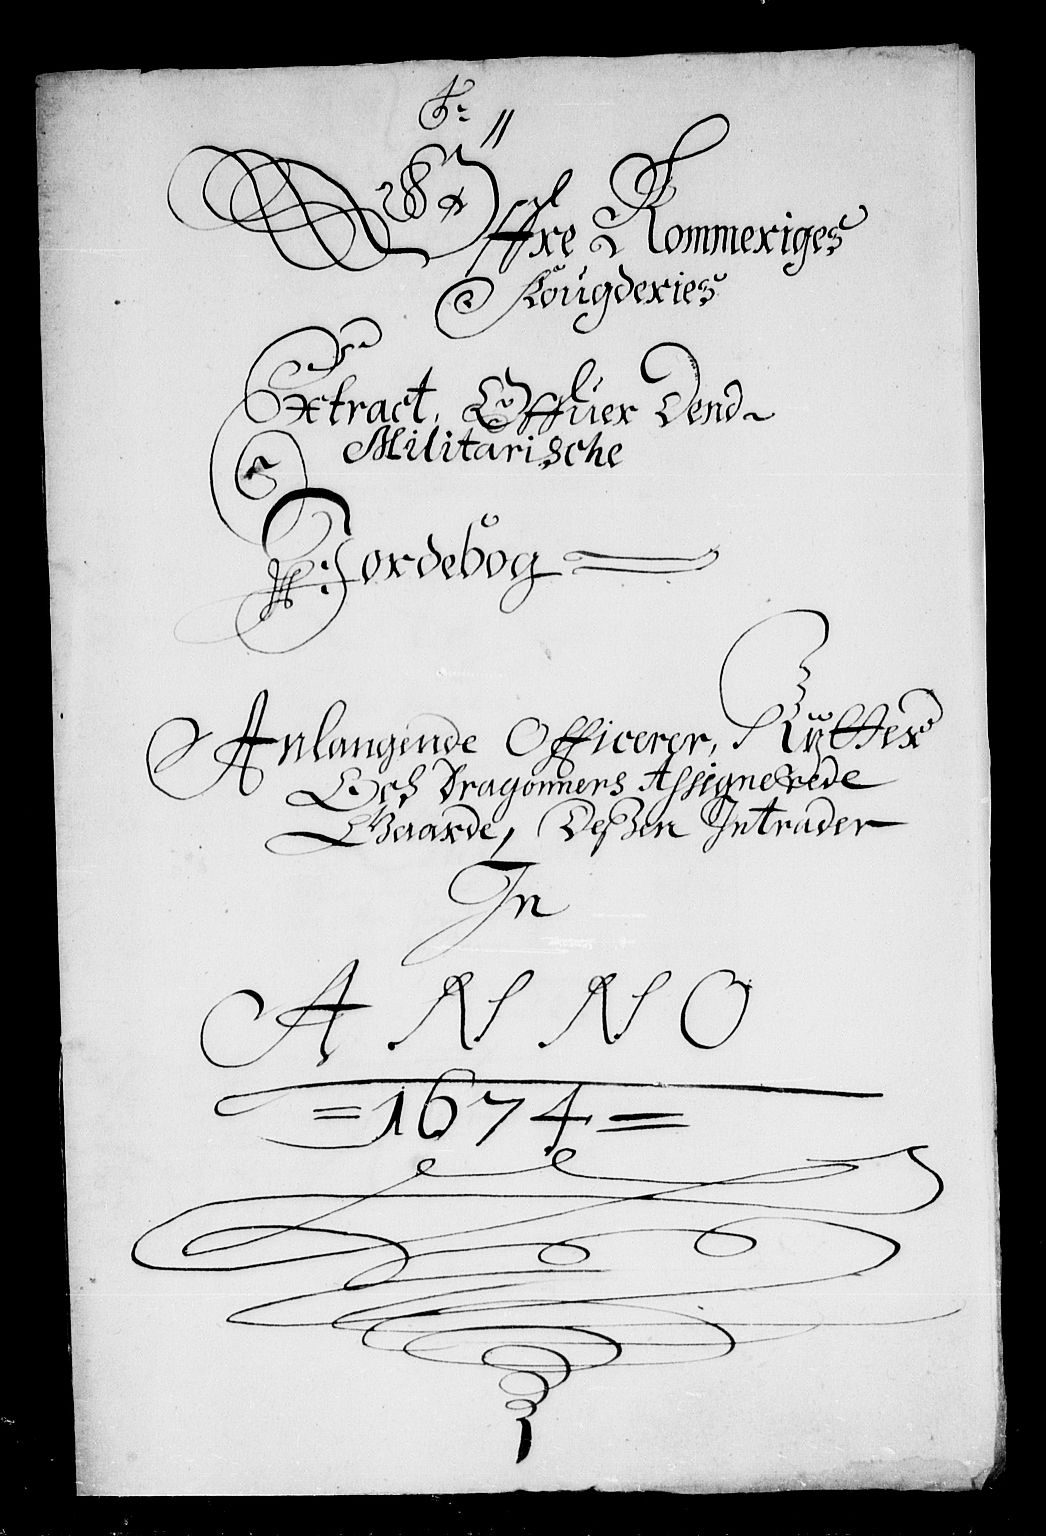 Öffre Rommeriges
Fougderies
Extract, Offuer Dend
Militärische
Jordebog
Anlangende Officerer, Rÿtter
Och Dragonners Assignerede
Gaarde, Dessen Intrader
In
ANNO
=1674=